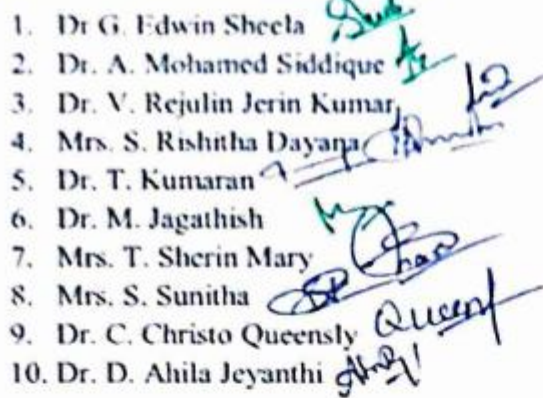 1. Dr G. Edwin Sheela
2. Dr. A. Mohamed Siddique
3. Dr. V. Rejulin Jerin Kumar
4. Mrs. S. Rishitha Dayana
5. Dr. T. Kumaran
6. Dr. M. Jagathish
7. Mrs. T. Sherin Mary
8. Mrs. S. Sunitha
9. Dr. C. Christo Queensly Queensly
10. Dr. D. Ahila Jeyanthi